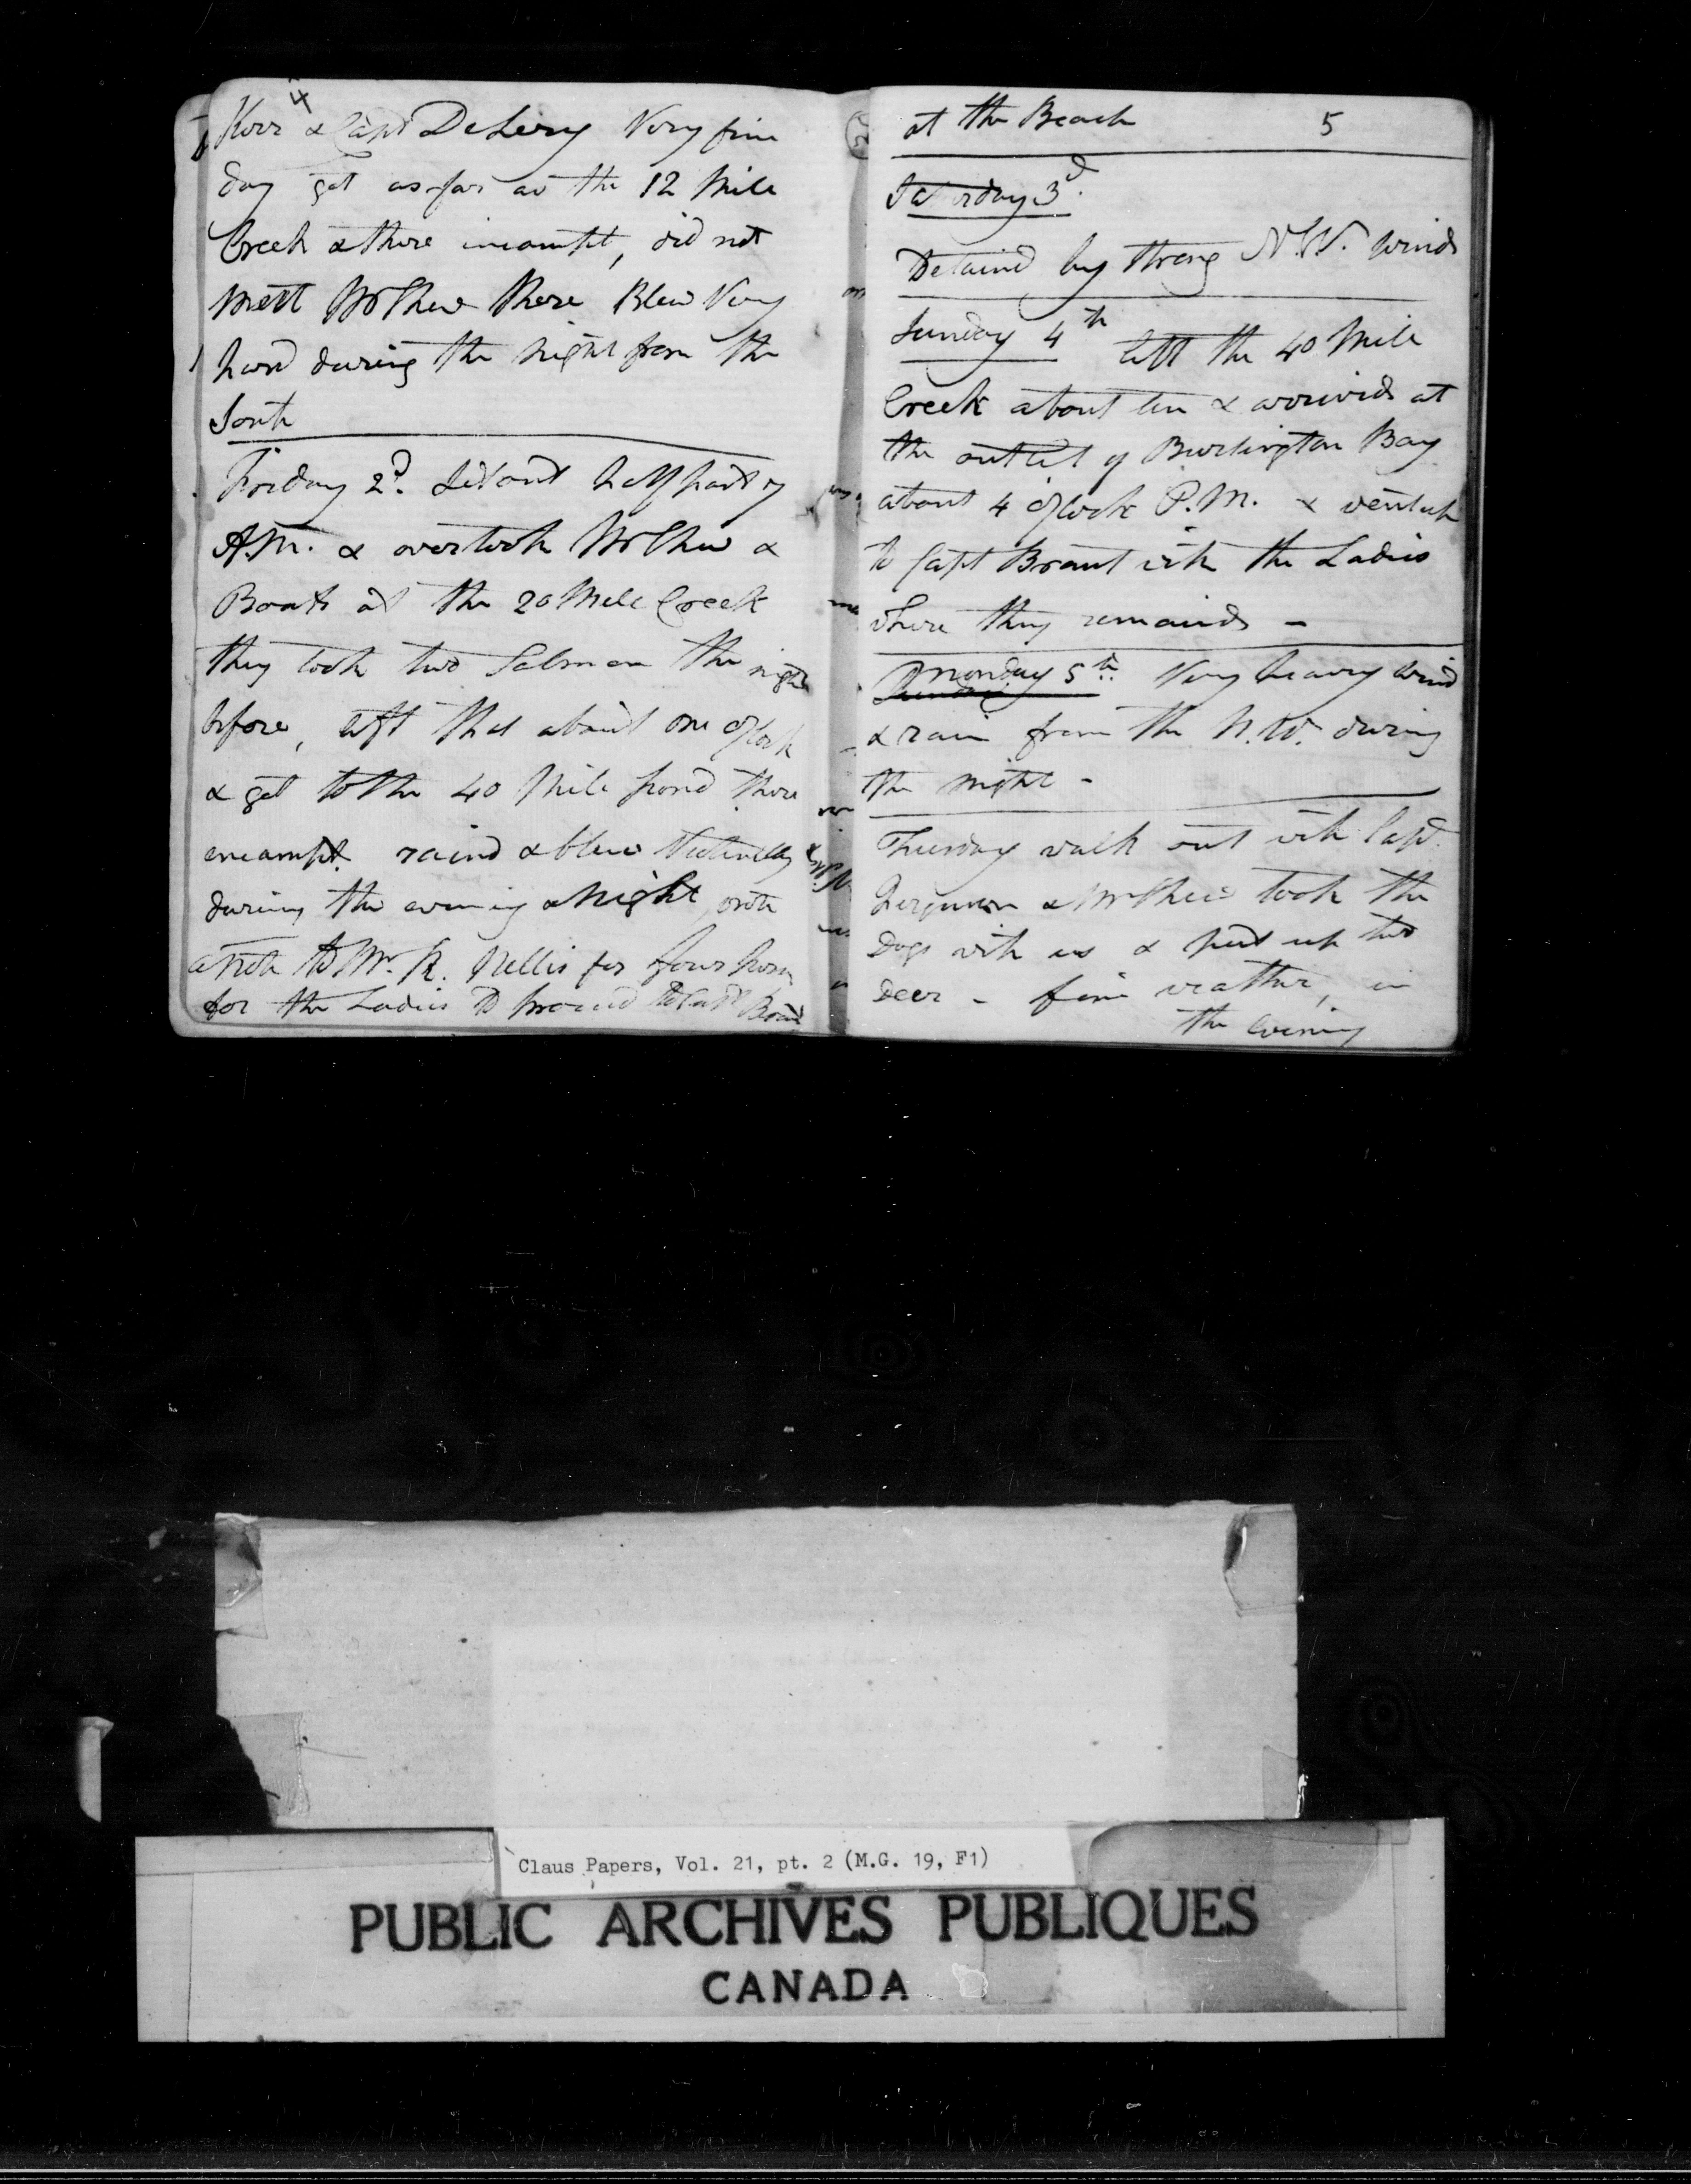 4
Kerr & Capt DeLery Very fine
day got as far as the 12 Mile
Creek & there incampt, did not
meet Mr Chew there Blew Very
hard during the night from the
South
Friday 2d. Set out half past 7
A.M. & overtook Mr Chew &
Boats at the 20 Mile Creek
they took two Salmon the night
before, left that about one oClock
& got to the 40 Mile pond there
encampt. raind & blew
during the evening & Night, wrote
a note to Mr. R. Nellis for four horses
for the Ladies to proceed to Capt Brant
5
at the Beach
Saturday 3d.
Detaind by strong N.W. winds
Sunday 4th left the 40 Mile
Creek about ten & arrivid at
the outlet of Burlington Bay
about 4 oClock P.M. & went up
to Capt Brant with the Ladies
where they remaind –
Sunday Monday 5th. Very heavy wind
& rain from the N.W. during
the night –
Tuesday walk out with Capt.
Ferguson & Mr Chew took the
Dogs with us & put up two
Deer – fine weather, in
the evening
Claus Papers, Vol. 21, pt. 2 (M.G. 19, F1)
PUBLIC ARCHIVES PUBLIQUES
CANADA